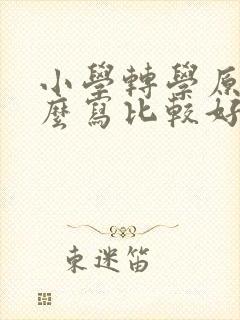 小學轉學原
麼寫比較好
東迷笛